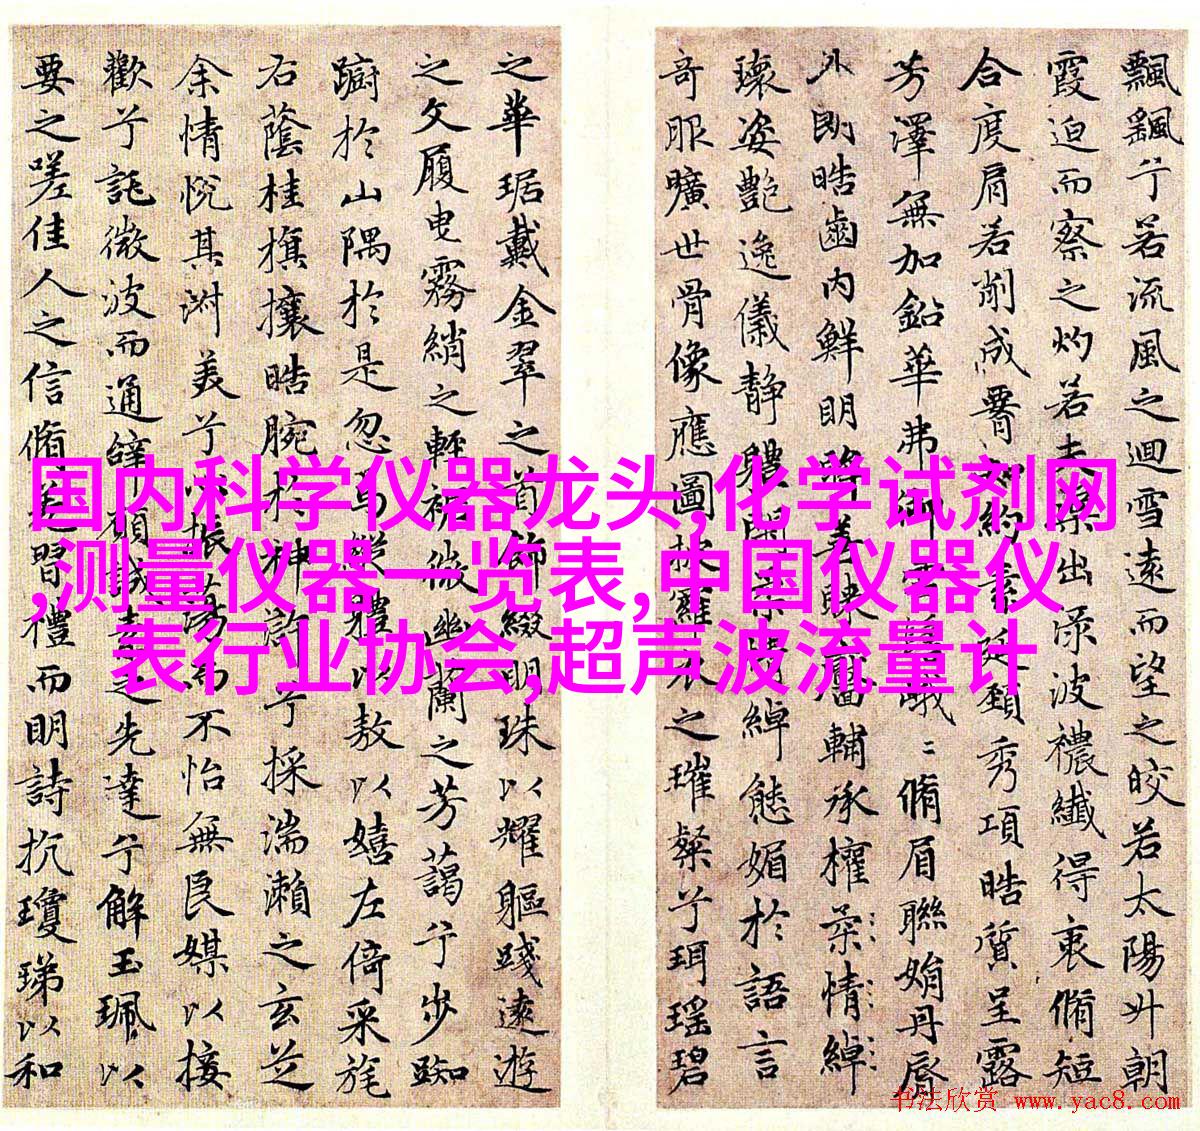 飄飖兮若流風之迴雪遠而望之皎若太陽升朝
霞迫而察之灼若夫蕖出淥波襛纖得衷脩短
合度肩若削成䙅如約素延頸秀項皓質呈露
芳澤無加鉛華弗御雲髻峨〻脩眉聯娟丹脣
外朗皓齒内鮮明眸善睞靨輔承權柔情綽
瓌姿艷逸儀静體閑柔情綽態媚於語言
奇服曠世骨像應圖披羅衣之璀粲兮珥瑶碧
之華琚戴金翠之首飾綴明珠以耀軀踐遠遊
之文履曳霧綃之輕裾微幽蘭之芳藹兮步踟
蹰於山隅於是忽焉縱體以敖以嬉左倚采旄
右蔭桂旗攘皓腕於神滸兮採湍瀨之玄芝
余情悅其淑美兮心振蕩而不怡無良媒以接
歡兮託微波而通辭願誠素之先達兮解玉珮以
要之嗟佳人之信脩羌習禮而明詩抗瓊珶以和
国内科学仪器龙头,化学试剂网
,测量仪器一览表,中国仪器仪
表行业协会,超声波流量计
书法欣赏 www.yac8.com